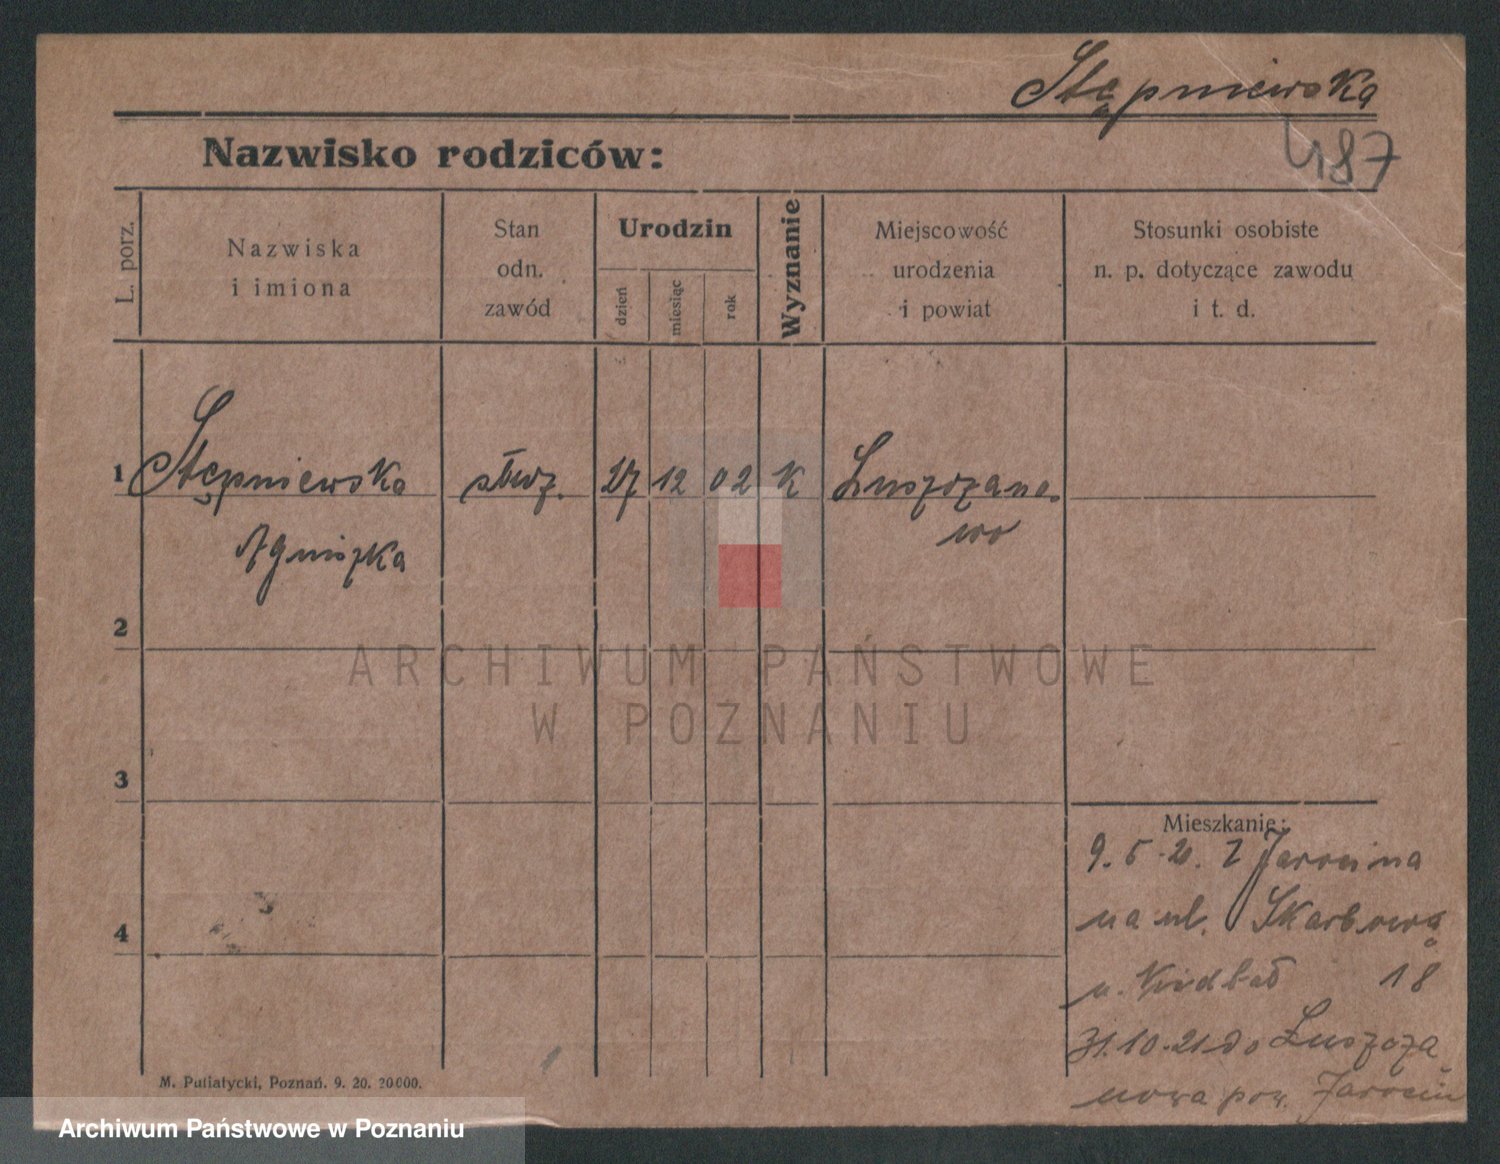 Stępniewska
487
Nazwisko rodziców:
L. porz.
Nazwiska
i imiona
Stan
odn.
zawód
Urodzin
dzień
miesiąc
rok
Wyznanie
Miejscowość
urodzenia
i powiat
Stosunki osobiste
n. p. dotyczące zawodu
i t. d.
1 Stępniewska służ. 27 12 02 K Łuszczano-
wo
Agniszka
2
3
4
Mieszkanie:
9. 5. 21. Z Jarocina
na ul. Skarbową
u. 18
31.10.21 do Łuszcza
nowa pow. Jarocin
M. Putiatycki, Poznań. 9. 20. 20000.
ARCHIWUM PAŃSTWOWE
W POZNANIU
Archiwum Państwowe w Poznaniu